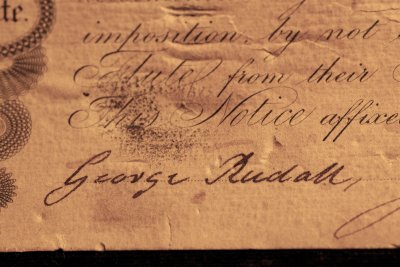 te.
imposition, by not
Flute from their
This Notice affixe
George Rudall,